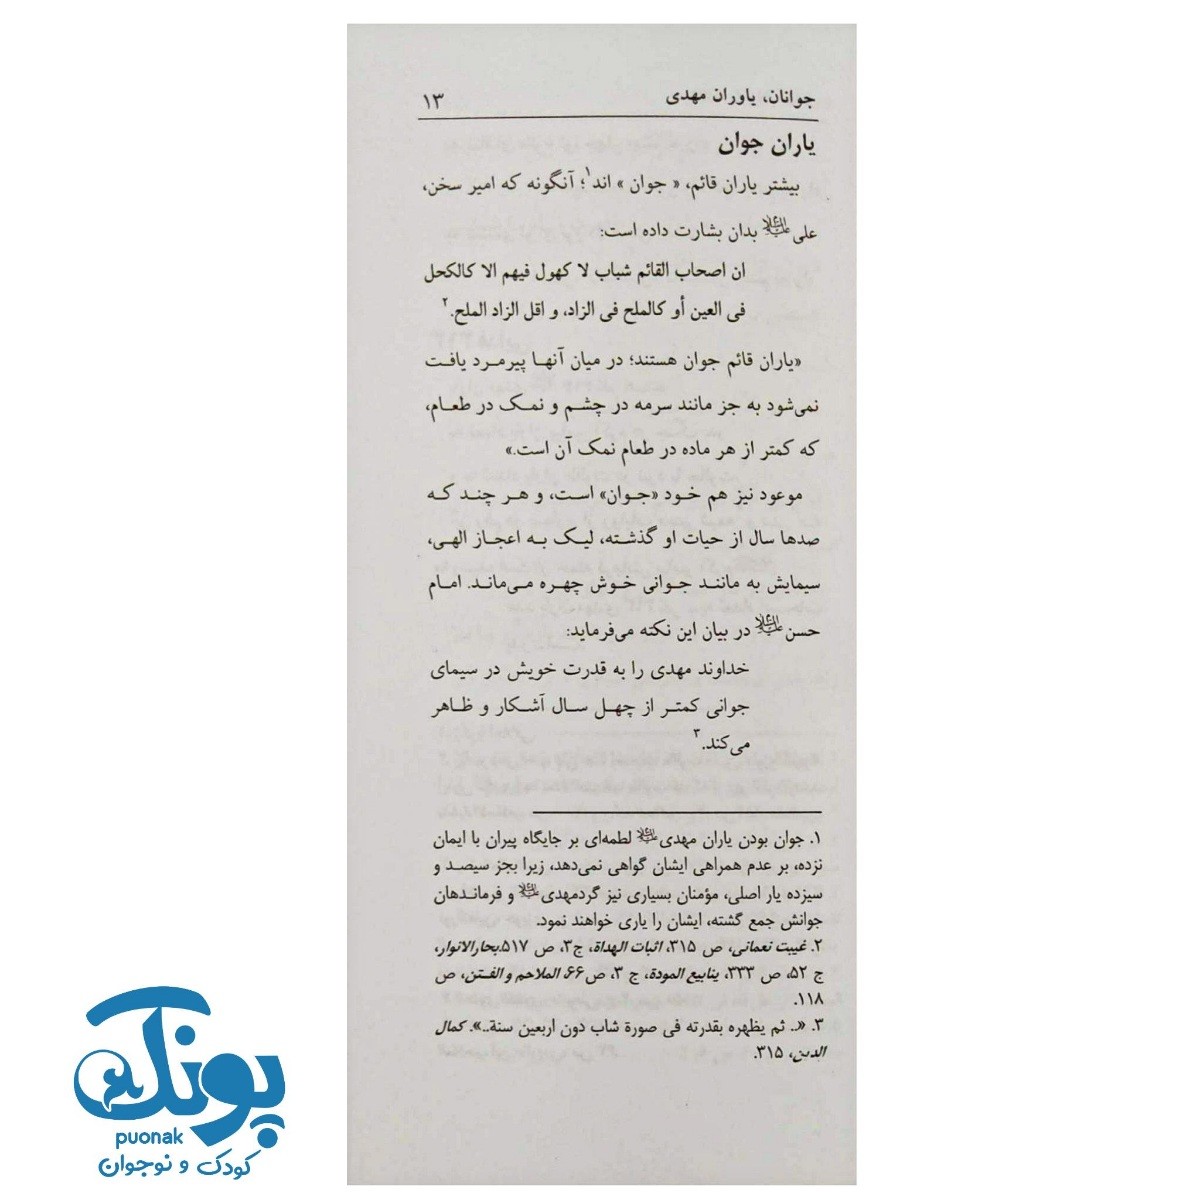 جوانان، یاوران مهدی ۱۳
یاران جوان
بیشتر یاران قائم، « جوان » اند۱؛ آنگونه که امیر سخن،
علی علیه‌السلام بدان بشارت داده است:
ان اصحاب القائم شباب لا کهول فیهم الا کالکحل
فی العین أو کالملح فی الزاد، و اقل الزاد الملح.۲
«یاران قائم جوان هستند؛ در میان آنها پیرمرد یافت
نمی‌شود به جز مانند سرمه در چشم و نمک در طعام،
که کمتر از هر ماده در طعام نمک آن است.»
موعود نیز هم خود «جوان» است، و هر چند که
صدها سال از حیات او گذشته، لیک به اعجاز الهی،
سیمایش به مانند جوانی خوش چهره می‌ماند. امام
حسن علیه‌السلام در بیان این نکته می‌فرماید:
خداوند مهدی را به قدرت خویش در سیمای
جوانی کمتر از چهل سال آشکار و ظاهر
می‌کند.۳
۱. جوان بودن یاران مهدی علیه‌السلام لطمه‌ای بر جایگاه پیران با ایمان
نزده، بر عدم همراهی ایشان گواهی نمی‌دهد، زیرا بجز سیصد و
سیزده یار اصلی، مؤمنان بسیاری نیز گردمهدی علیه‌السلام و فرماندهان
جوانش جمع گشته، ایشان را یاری خواهند نمود.
۲. غیبت نعمانی، ص ۳۱۵، اثبات الهداة، ج۳، ص ۵۱۷،بحارالانوار،
ج ۵۲، ص ۳۳۳، ینابیع المودة، ج ۳، ص۶۶، الملاحم و الفتن، ص
۱۱۸.
۳. «.. ثم یظهره بقدرته فی صورة شاب دون اربعین سنة..». کمال
الدین، ۳۱۵.
پونک
puonak
کودک و نوجوان